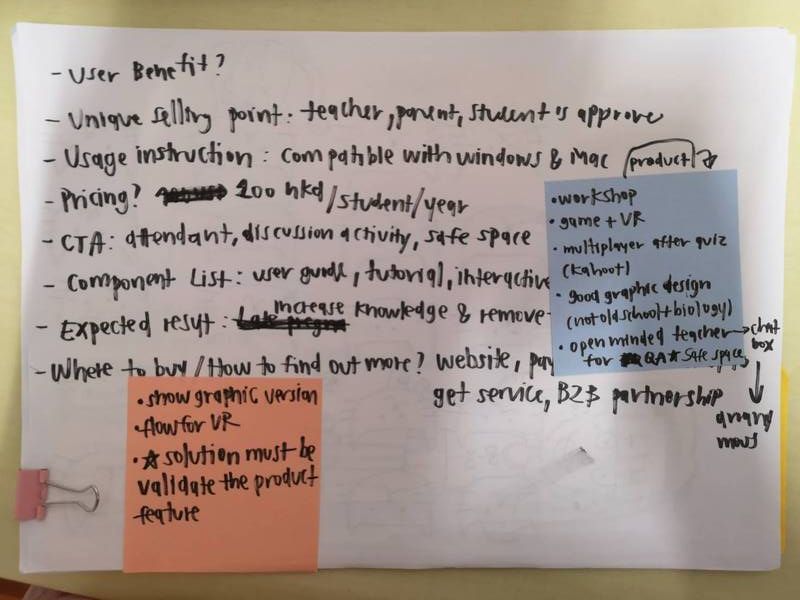 - User Benefit?
- Unique selling point: teacher, parent, student is approve
- Usage instruction: compatible with windows & Mac
- Pricing? 200 hkd/student/year
- CTA: attendant, discussion activity, safe space
- Component List: user guide, tutorial, interactive
- Expected result: increase knowledge & remove
- Where to buy/How to find out more? website,
get service, B2B partnership
product
• workshop
• game + VR
• multiplayer after quiz
(kahoot)
• good graphic design
(not old school + biology)
• open minded teacher → chat
box
for QA ★ Safe space
• show graphic version
• flow for VR
• ★ solution must be
validate the product
feature